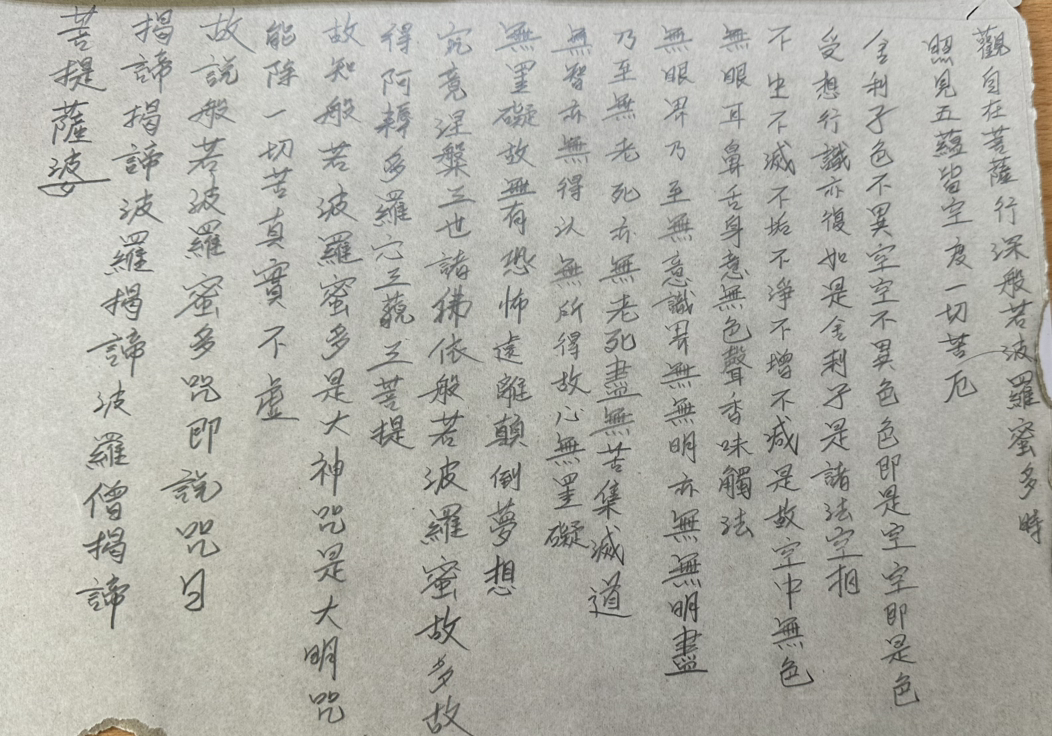 觀自在菩薩行深般若波羅蜜多時
照見五蘊皆空度一切苦厄
舍利子色不異空空不異色色即是空空即是色
受想行識亦復如是舍利子是諸法空相
不生不滅不垢不淨不增不減是故空中無色
無眼耳鼻舌身意無色聲香味觸法
無眼界乃至無意識界無無明亦無無明盡
乃至無老死亦無老死盡無苦集滅道
無智亦無得以無所得故心無罣礙
無罣礙故無有恐怖遠離顛倒夢想
究竟涅槃三世諸佛依般若波羅蜜故多故
得阿耨多羅穴三藐三菩提
故知般若波羅蜜多是大神咒是大明咒
能除一切苦真實不虛
故說般若波羅蜜多咒即說咒曰
揭諦揭諦波羅揭諦波羅僧揭諦
菩提薩婆